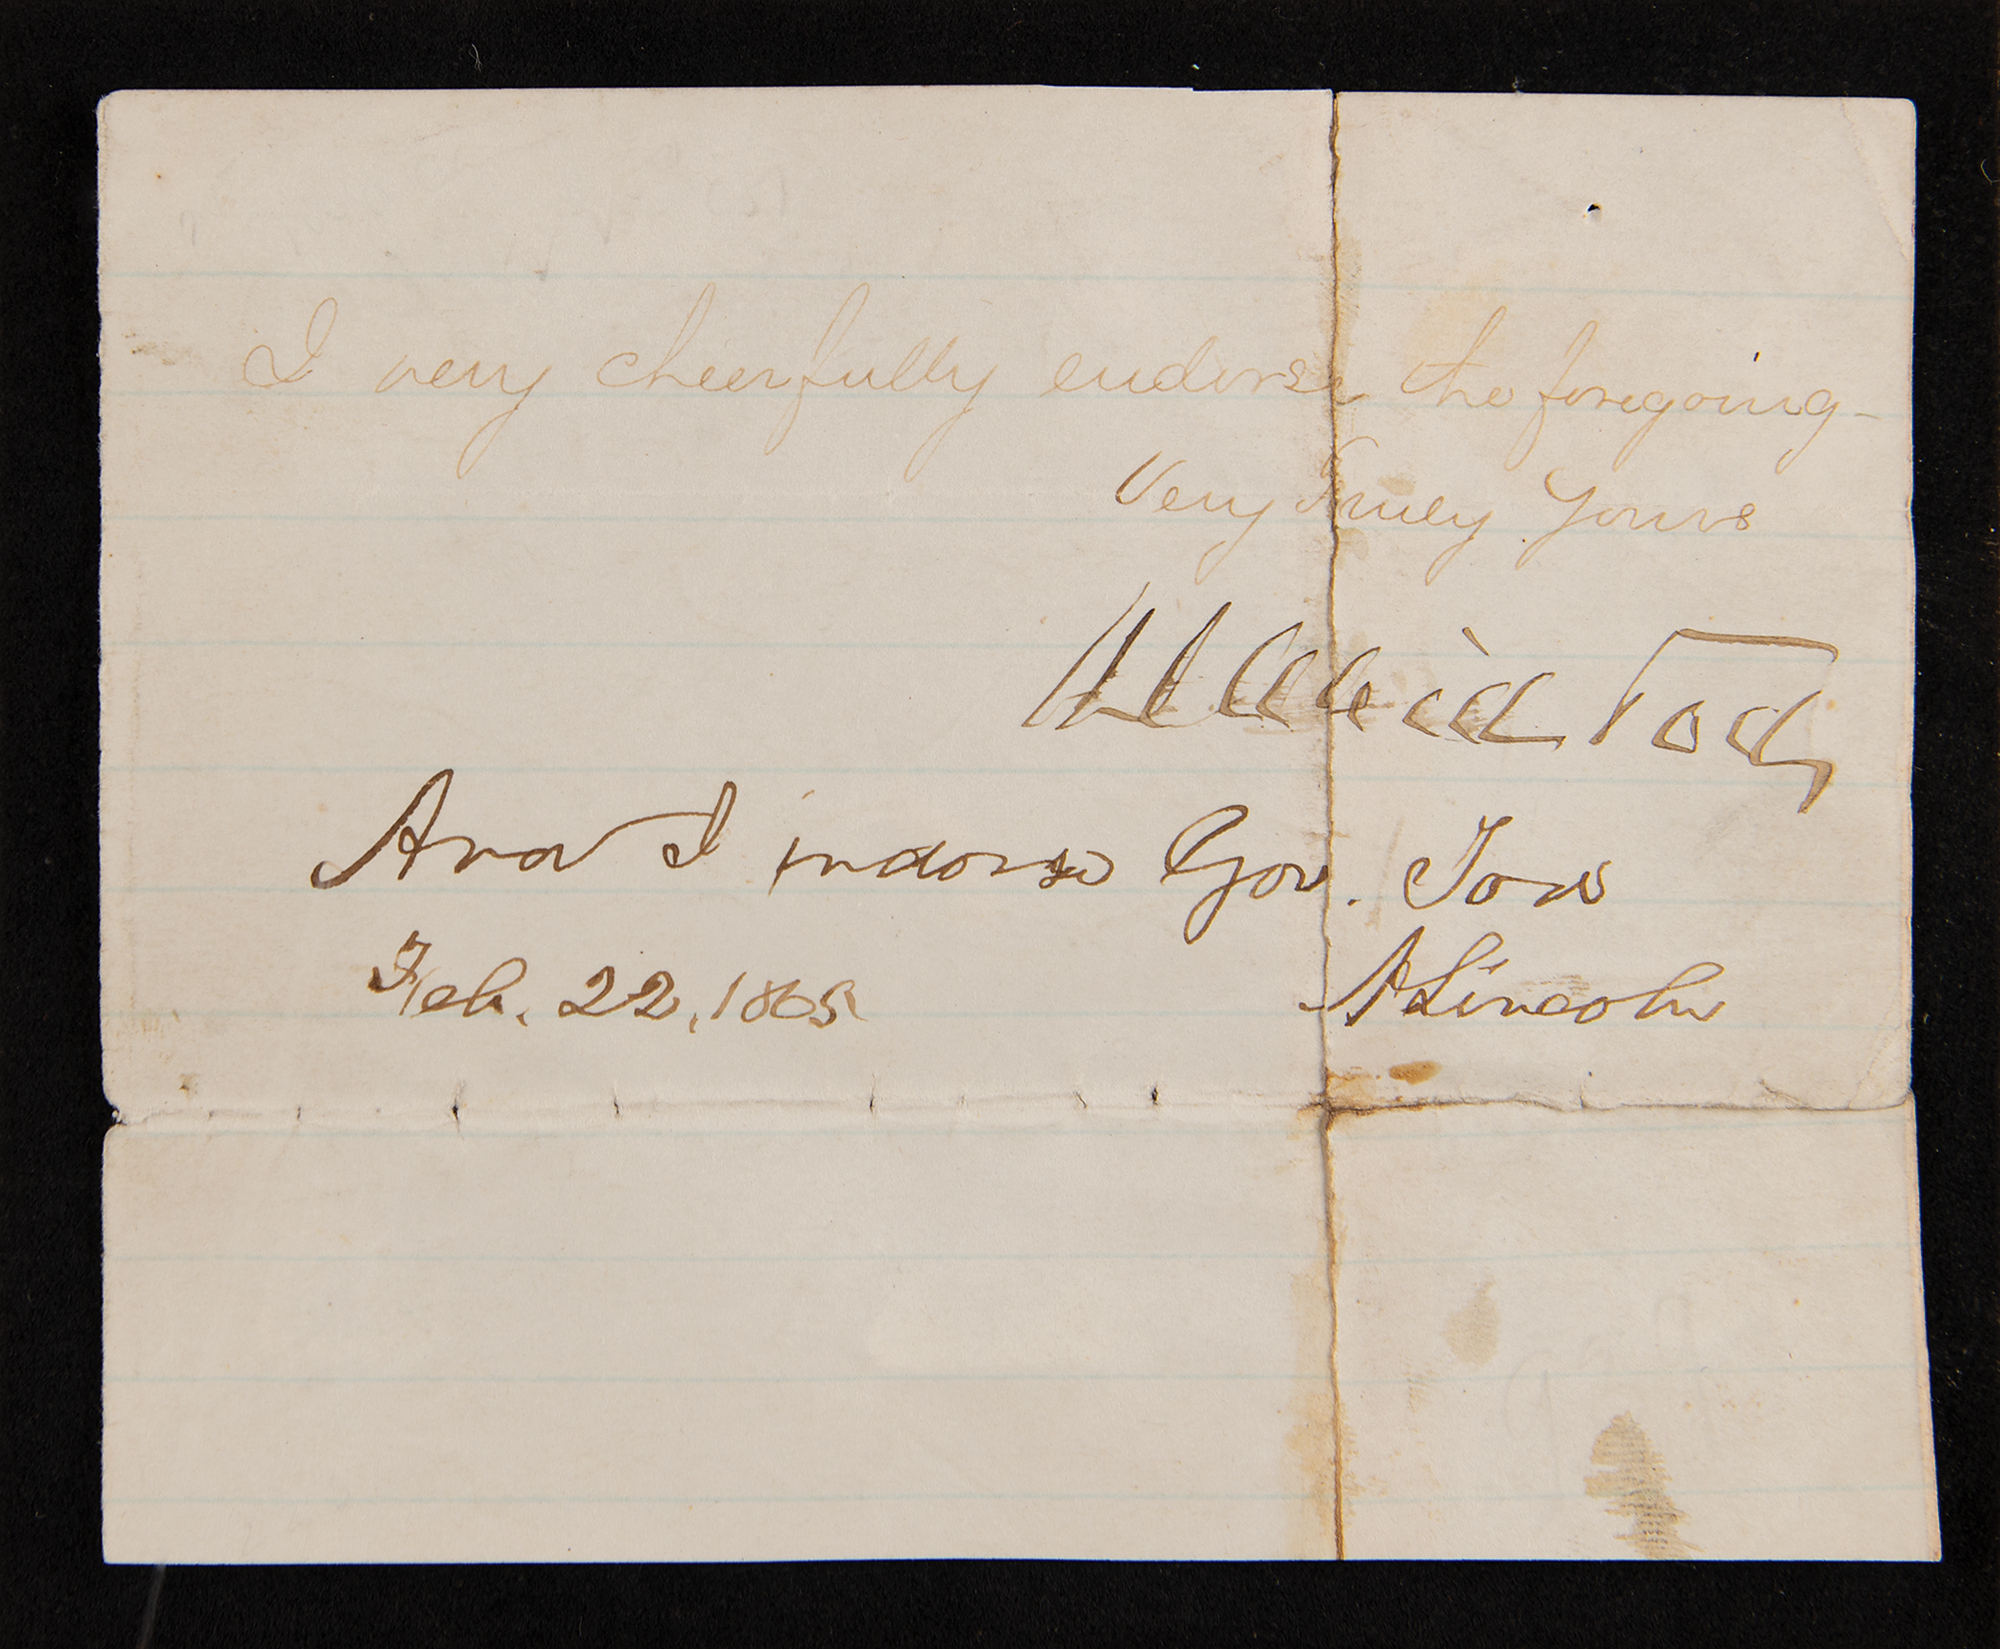 I very cheerfully endorse the foregoing-
Very Truly Yours
David Tod
And I indorse Gov. Tod
Feb. 22, 1865 A Lincoln